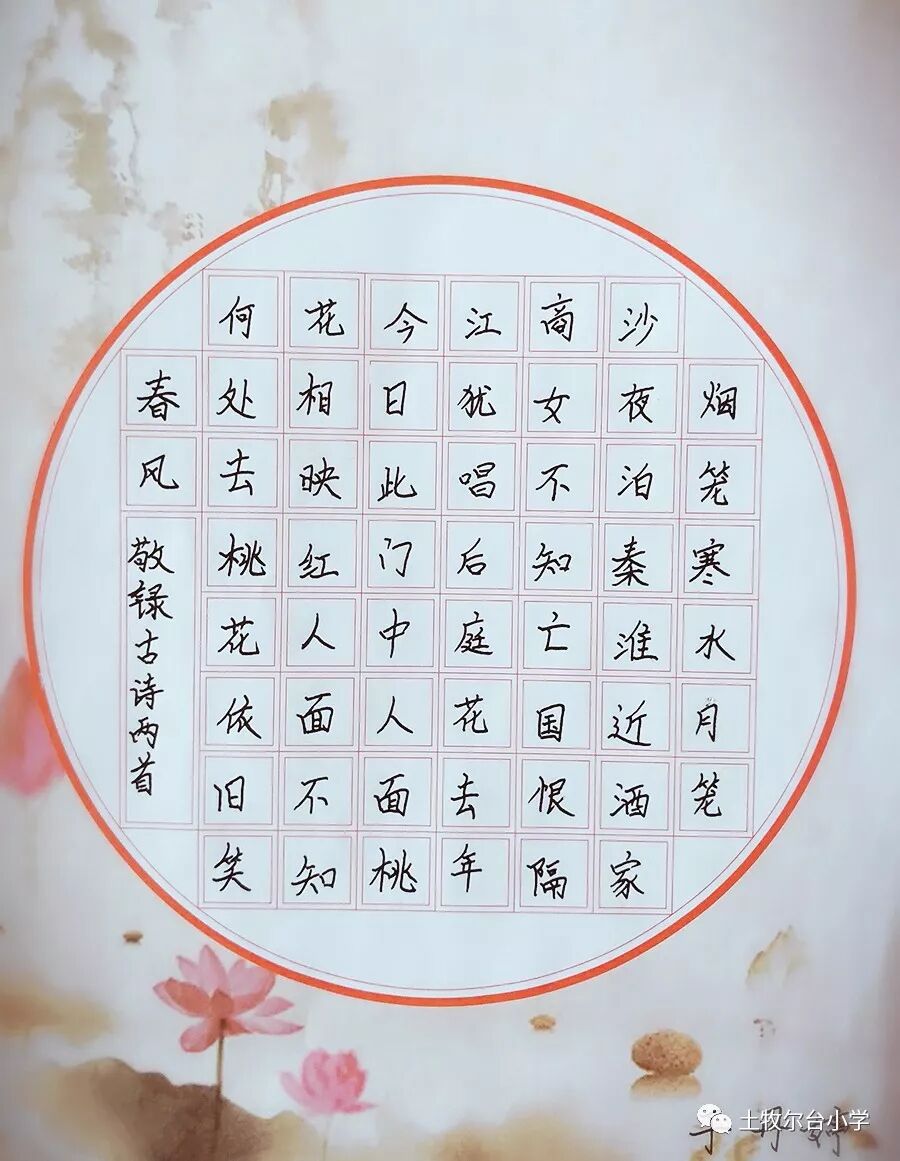 烟笼寒水月笼
沙夜泊秦淮近酒家
商女不知亡国恨隔
江犹唱后庭花去年
今日此门中人面桃
花相映红人面不知
何处去桃花依旧笑
春风
敬録古诗两首
土牧尔台小学